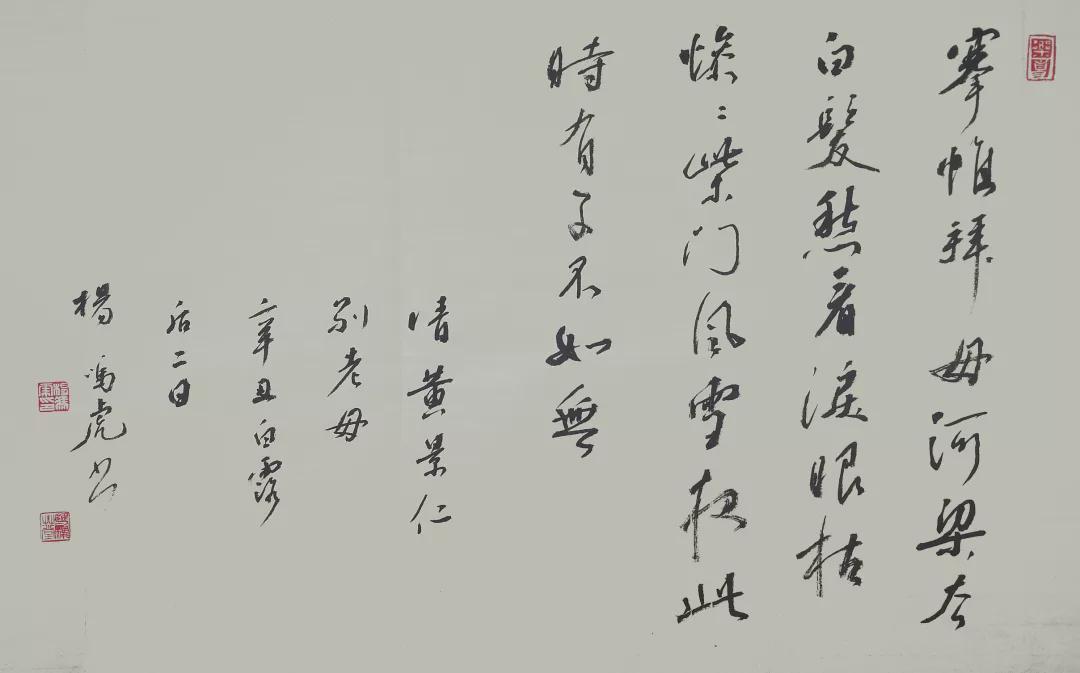 搴帷拜母河梁去
白髮愁看淚眼枯
惨〻柴门風雪夜此
時有子不如無
清黄景仁
别老母
辛丑白露
后二日
楊虎书